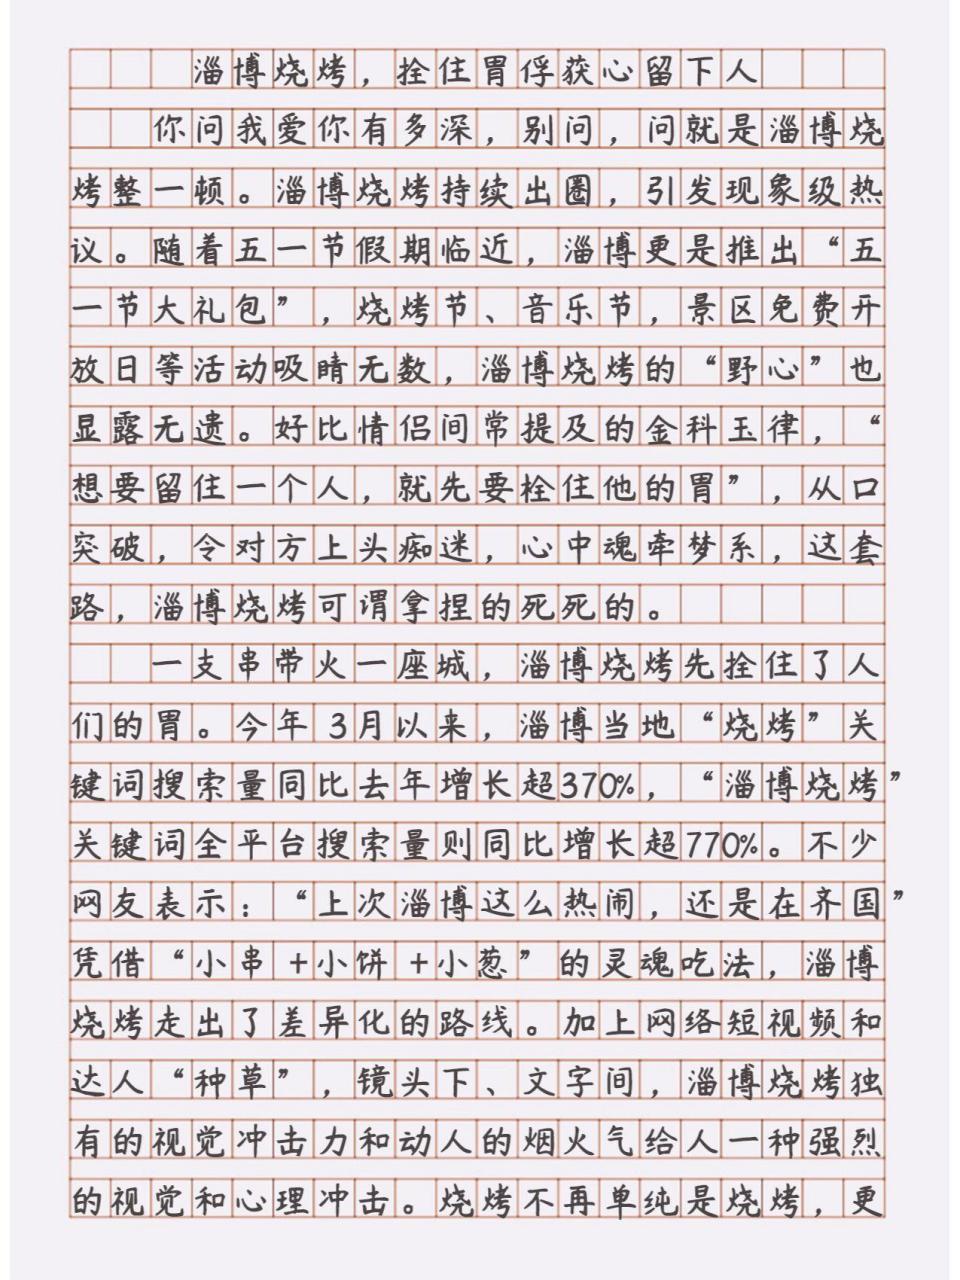 淄博烧烤，拴住胃俘获心留下人
你问我爱你有多深，别问，问就是淄博烧
烤整一顿。淄博烧烤持续出圈，引发现象级热
议。随着五一节假期临近，淄博更是推出“五
一节大礼包”，烧烤节、音乐节，景区免费开
放日等活动吸睛无数，淄博烧烤的“野心”也
显露无遗。好比情侣间常提及的金科玉律，“
想要留住一个人，就先要栓住他的胃”，从口
突破，令对方上头痴迷，心中魂牵梦系，这套
路，淄博烧烤可谓拿捏的死死的。
一支串带火一座城，淄博烧烤先拴住了人
们的胃。今年3月以来，淄博当地“烧烤”关
键词搜索量同比去年增长超370%，“淄博烧烤”
关键词全平台搜索量则同比增长超770%。不少
网友表示：“上次淄博这么热闹，还是在齐国”
凭借“小串+小饼+小葱”的灵魂吃法，淄博
烧烤走出了差异化的路线。加上网络短视频和
达人“种草”，镜头下、文字间，淄博烧烤独
有的视觉冲击力和动人的烟火气给人一种强烈
的视觉和心理冲击。烧烤不再单纯是烧烤，更